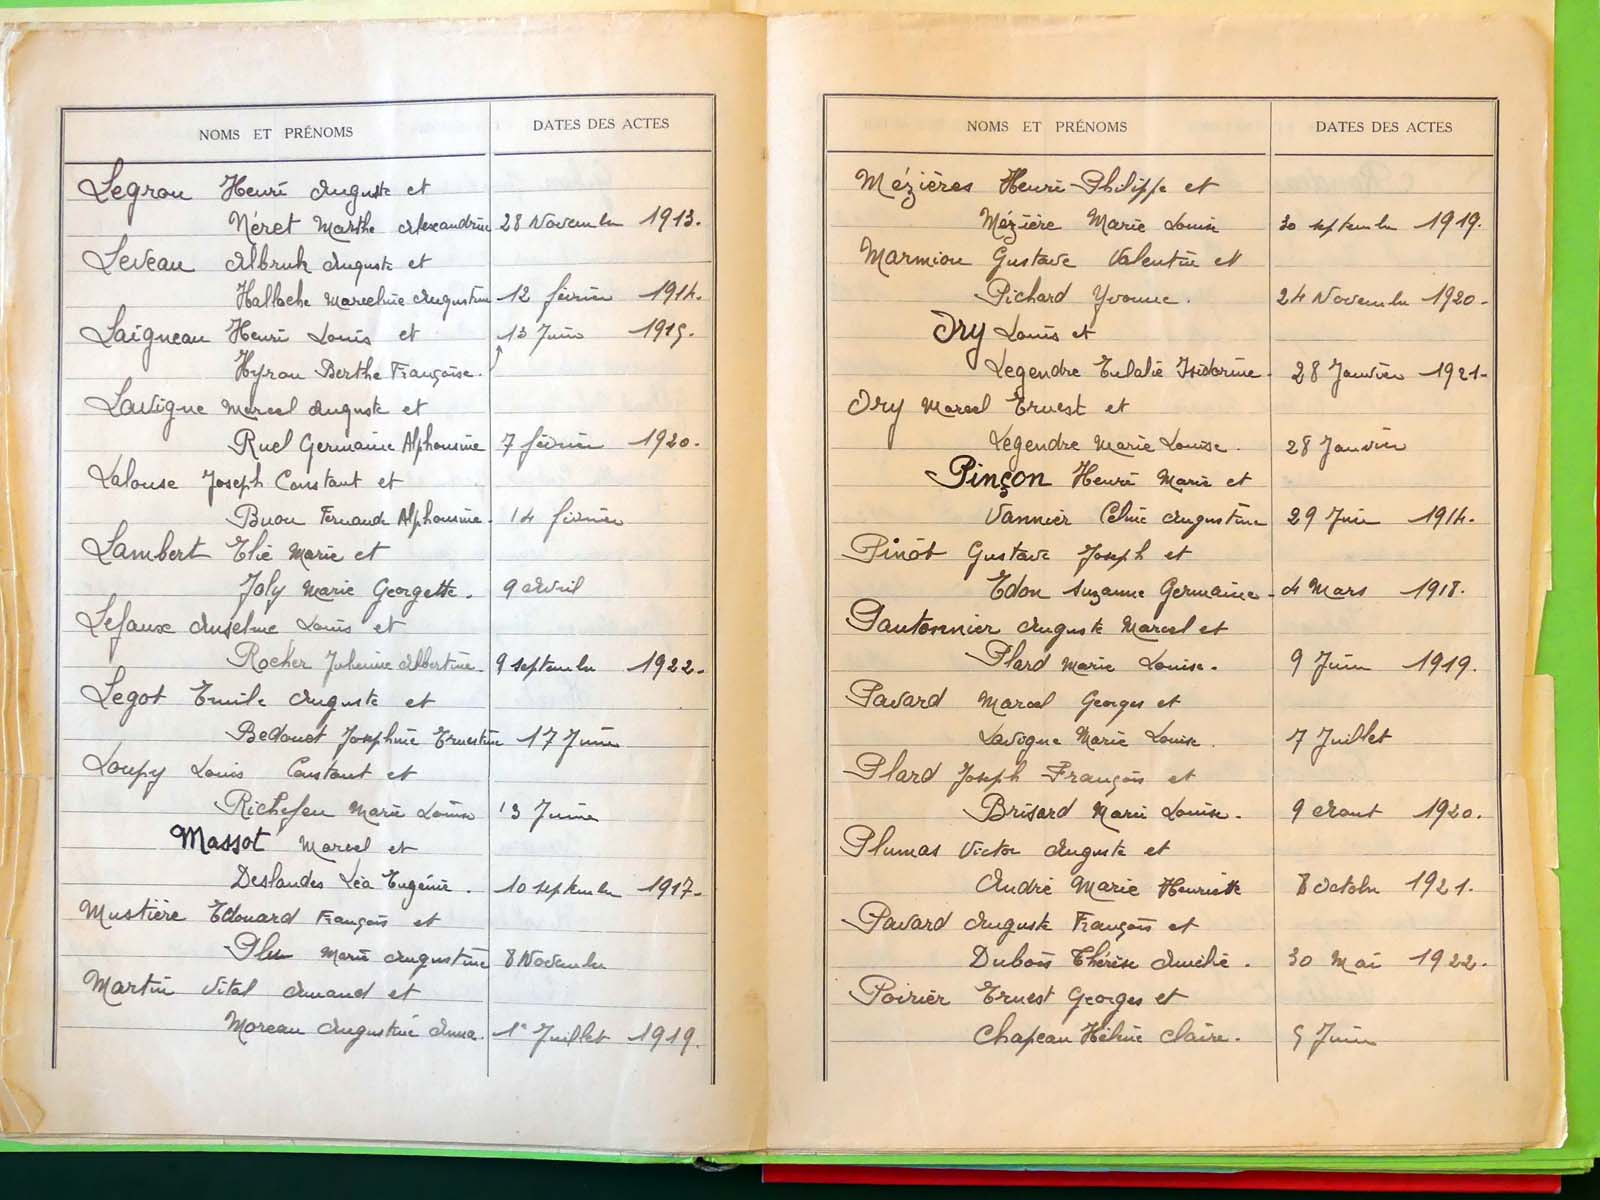 NOMS ET PRÉNOMS DATES DES ACTES
Legrou Henri Auguste et
Néret Marthe Alexandrine 28 Novembre 1913.
Leveau Auguste et
Marceline Augustine 12 février 1914.
Laigneau Henri Louis et 13 Juin 1915.
Hyron Berthe Françoise.
Lavigne Marcel Auguste et
Ruel Germaine Alphonsine 7 février 1920.
Lalouse Joseph Constant et
Buou Fernande Alphonsine. 14 février
Lambert Elie Marie et
Joly Marie Georgette. 9 Avril
Lefaux Anselme Louis et
Rocher Julienne Albertine. 9 septembre 1922.
Legot Emile Auguste et
Bedouet Joséphine Ernestine 17 Juin
Loupy Louis Constant et
Richefeu Marie Louise 13 Juin
Massot Marcel et
Deslandes Léa Eugénie. 10 septembre 1917.
Mustière Edouard François et
Plu Marie Augustine 8 Novembre
Martin Vital Amand et
Moreau Augustine Anna. 1er Juillet 1919.
NOMS ET PRÉNOMS DATES DES ACTES
Mézières Henri Philippe et
Mézière Marie Louise 30 septembre 1919.
Marmion Gustave Valentin et
Pichard Yvonne. 24 Novembre 1920.
Ory Louis et
Legendre Eulalie Isidorine. 28 Janvier 1921.
Ory Marcel Ernest et
Legendre Marie Louise. 28 Janvier
Pinçon Henri Marie et
Vannier Celine Augustine 29 Juin 1914.
Pinot Gustave Joseph et
Edon Suzanne Germaine. 4 Mars 1918.
Pautonnier Auguste Marcel et
Plard Marie Louise. 9 Juin 1919.
Pavard Marcel Georges et
Lavigne Marie Louise. 7 Juillet
Plard Joseph François et
Brisard Marie Louise. 9 Aout 1920.
Plumas Victor Auguste et
André Marie Henriette 8 Octobre 1921.
Pavard Auguste François et
Dubois Thérèse Amélie. 30 Mai 1922.
Poirier Ernest Georges et
Chapeau Hélène Claire. 5 Juin